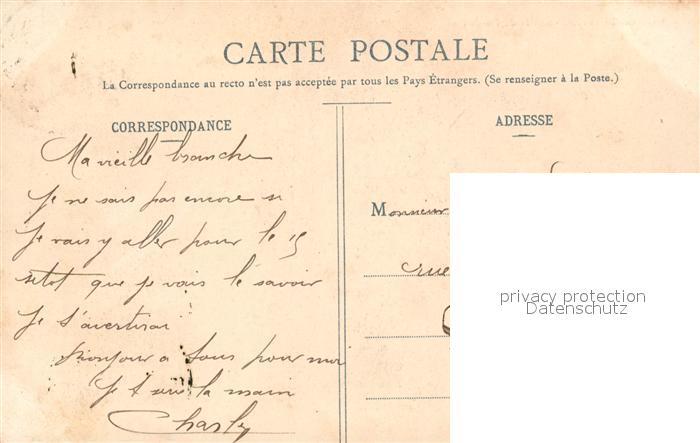 CARTE POSTALE
La Correspondance au recto n'est pas acceptée par tous les Pays Étrangers. (Se renseigner à la Poste.)
CORRESPONDANCE
ADRESSE
Ma vieille branche
Je ne sais pas encore si
Je vais y aller pour le 15
sitot que je vais le savoir
Je t'avertirai
Bonjour a tous pour moi
Je t serre la main
Charly
Monsieur
rue
privacy protection
Datenschutz